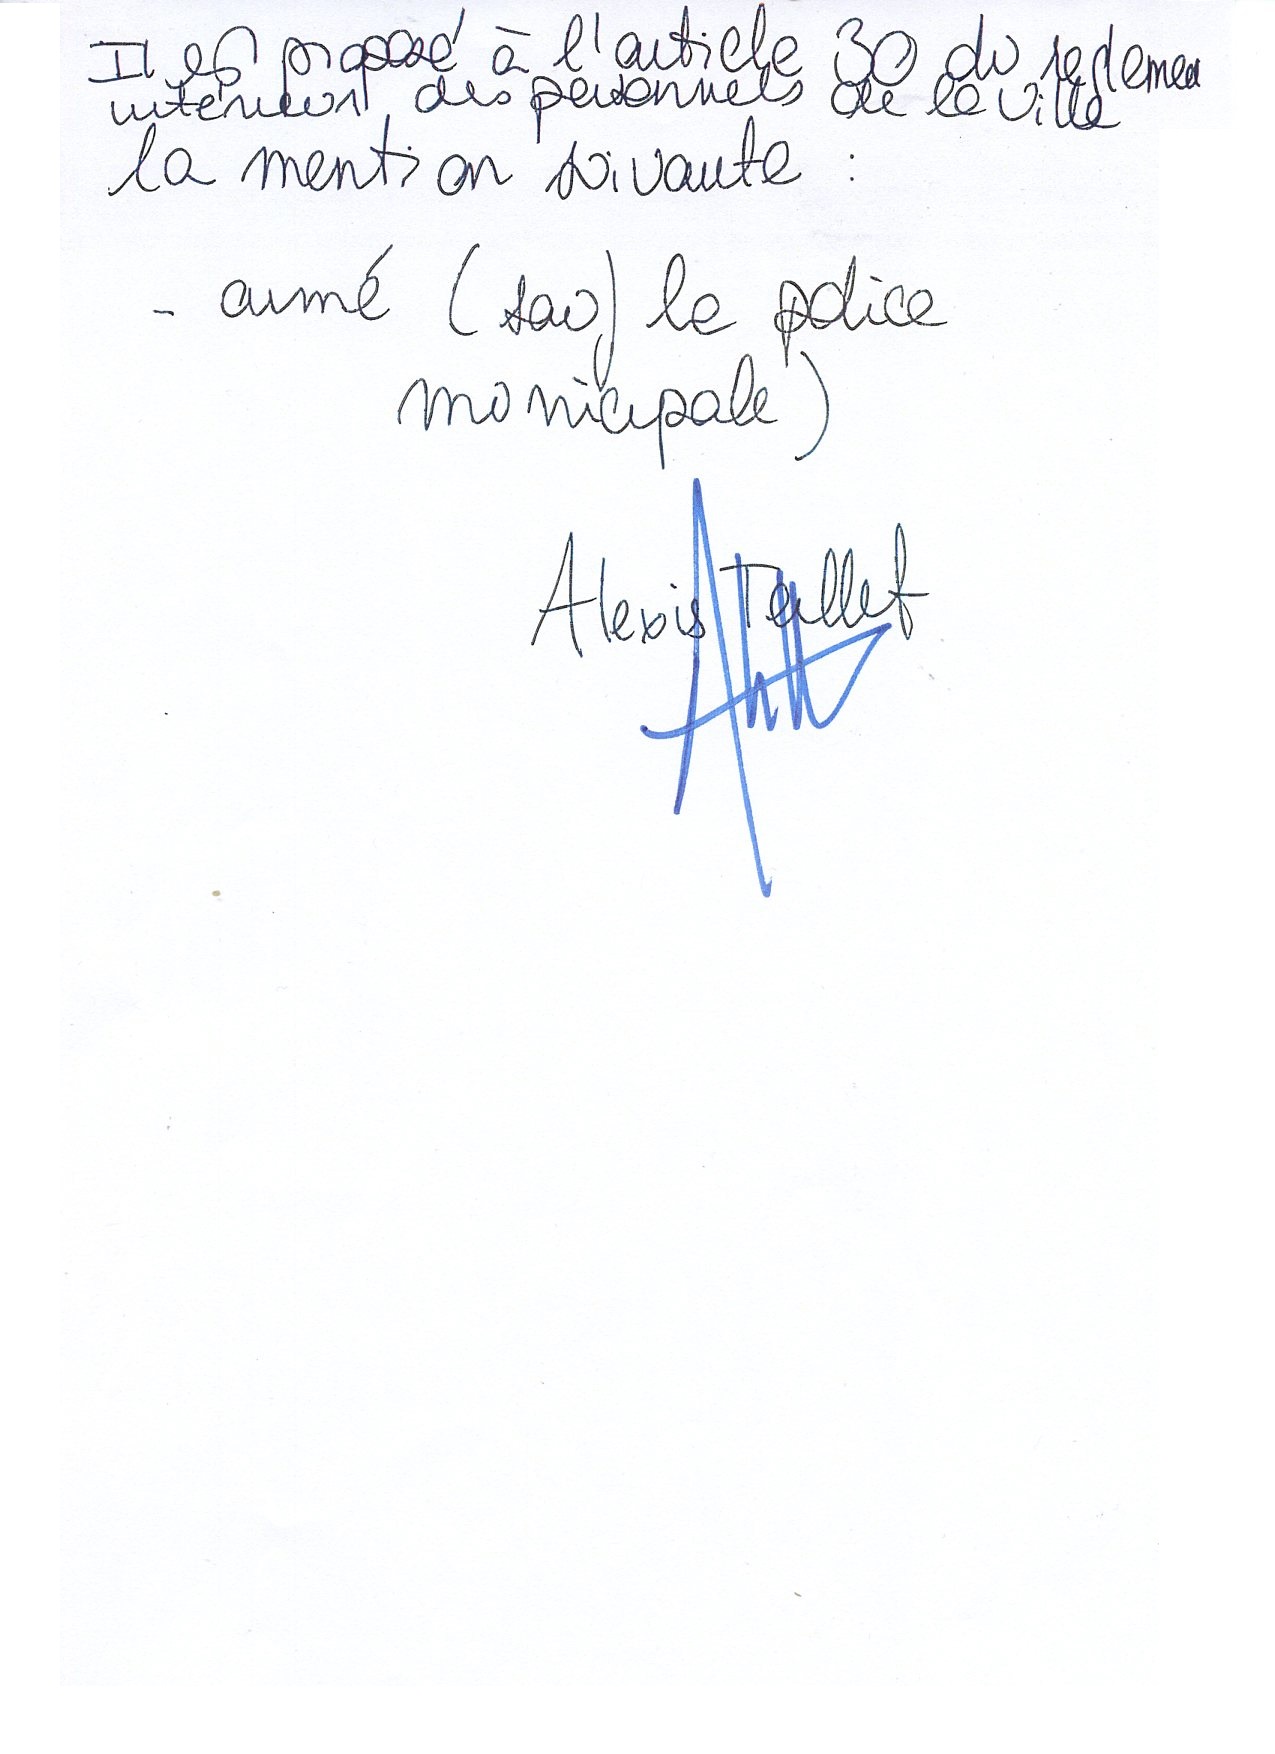 Il est proposé à l'article 30 du reglement
intérieur des personnels de la ville
la mention suivante :
- armé (sauf la police
municipale)
Alexis Teillet